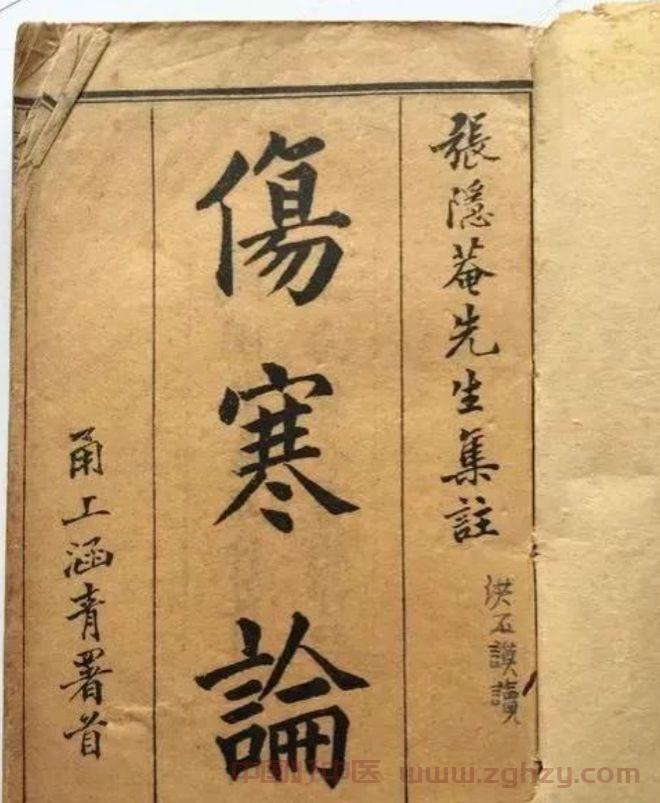 張隱菴先生集註
洪石讀
傷寒論
甬上涵青署首
中医 www.zghzy.com